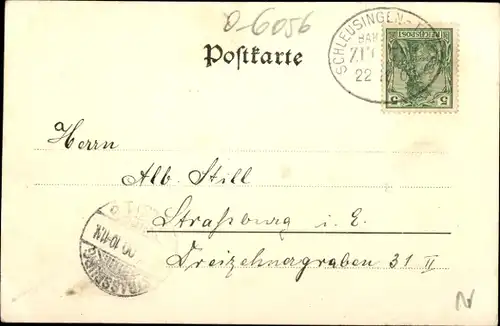 O-6056
Postkarte
SCHLEUSINGEN
BAH
22
REICHSPOST
5 5
Herrn
Alb. Still
Straßburg i. E.
Dreizehnergraben 31 II
10-11N.